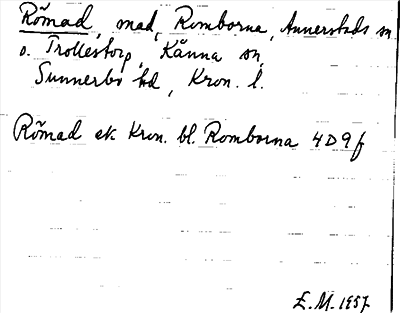 Römad, mad, Romborna, Annerstads sn.
o. Trollestorp, Känna sn,
Sunnerbo hd, Kron. l.
Römad ek Kron. bl. Romborna 4D9f
E.M. 1957